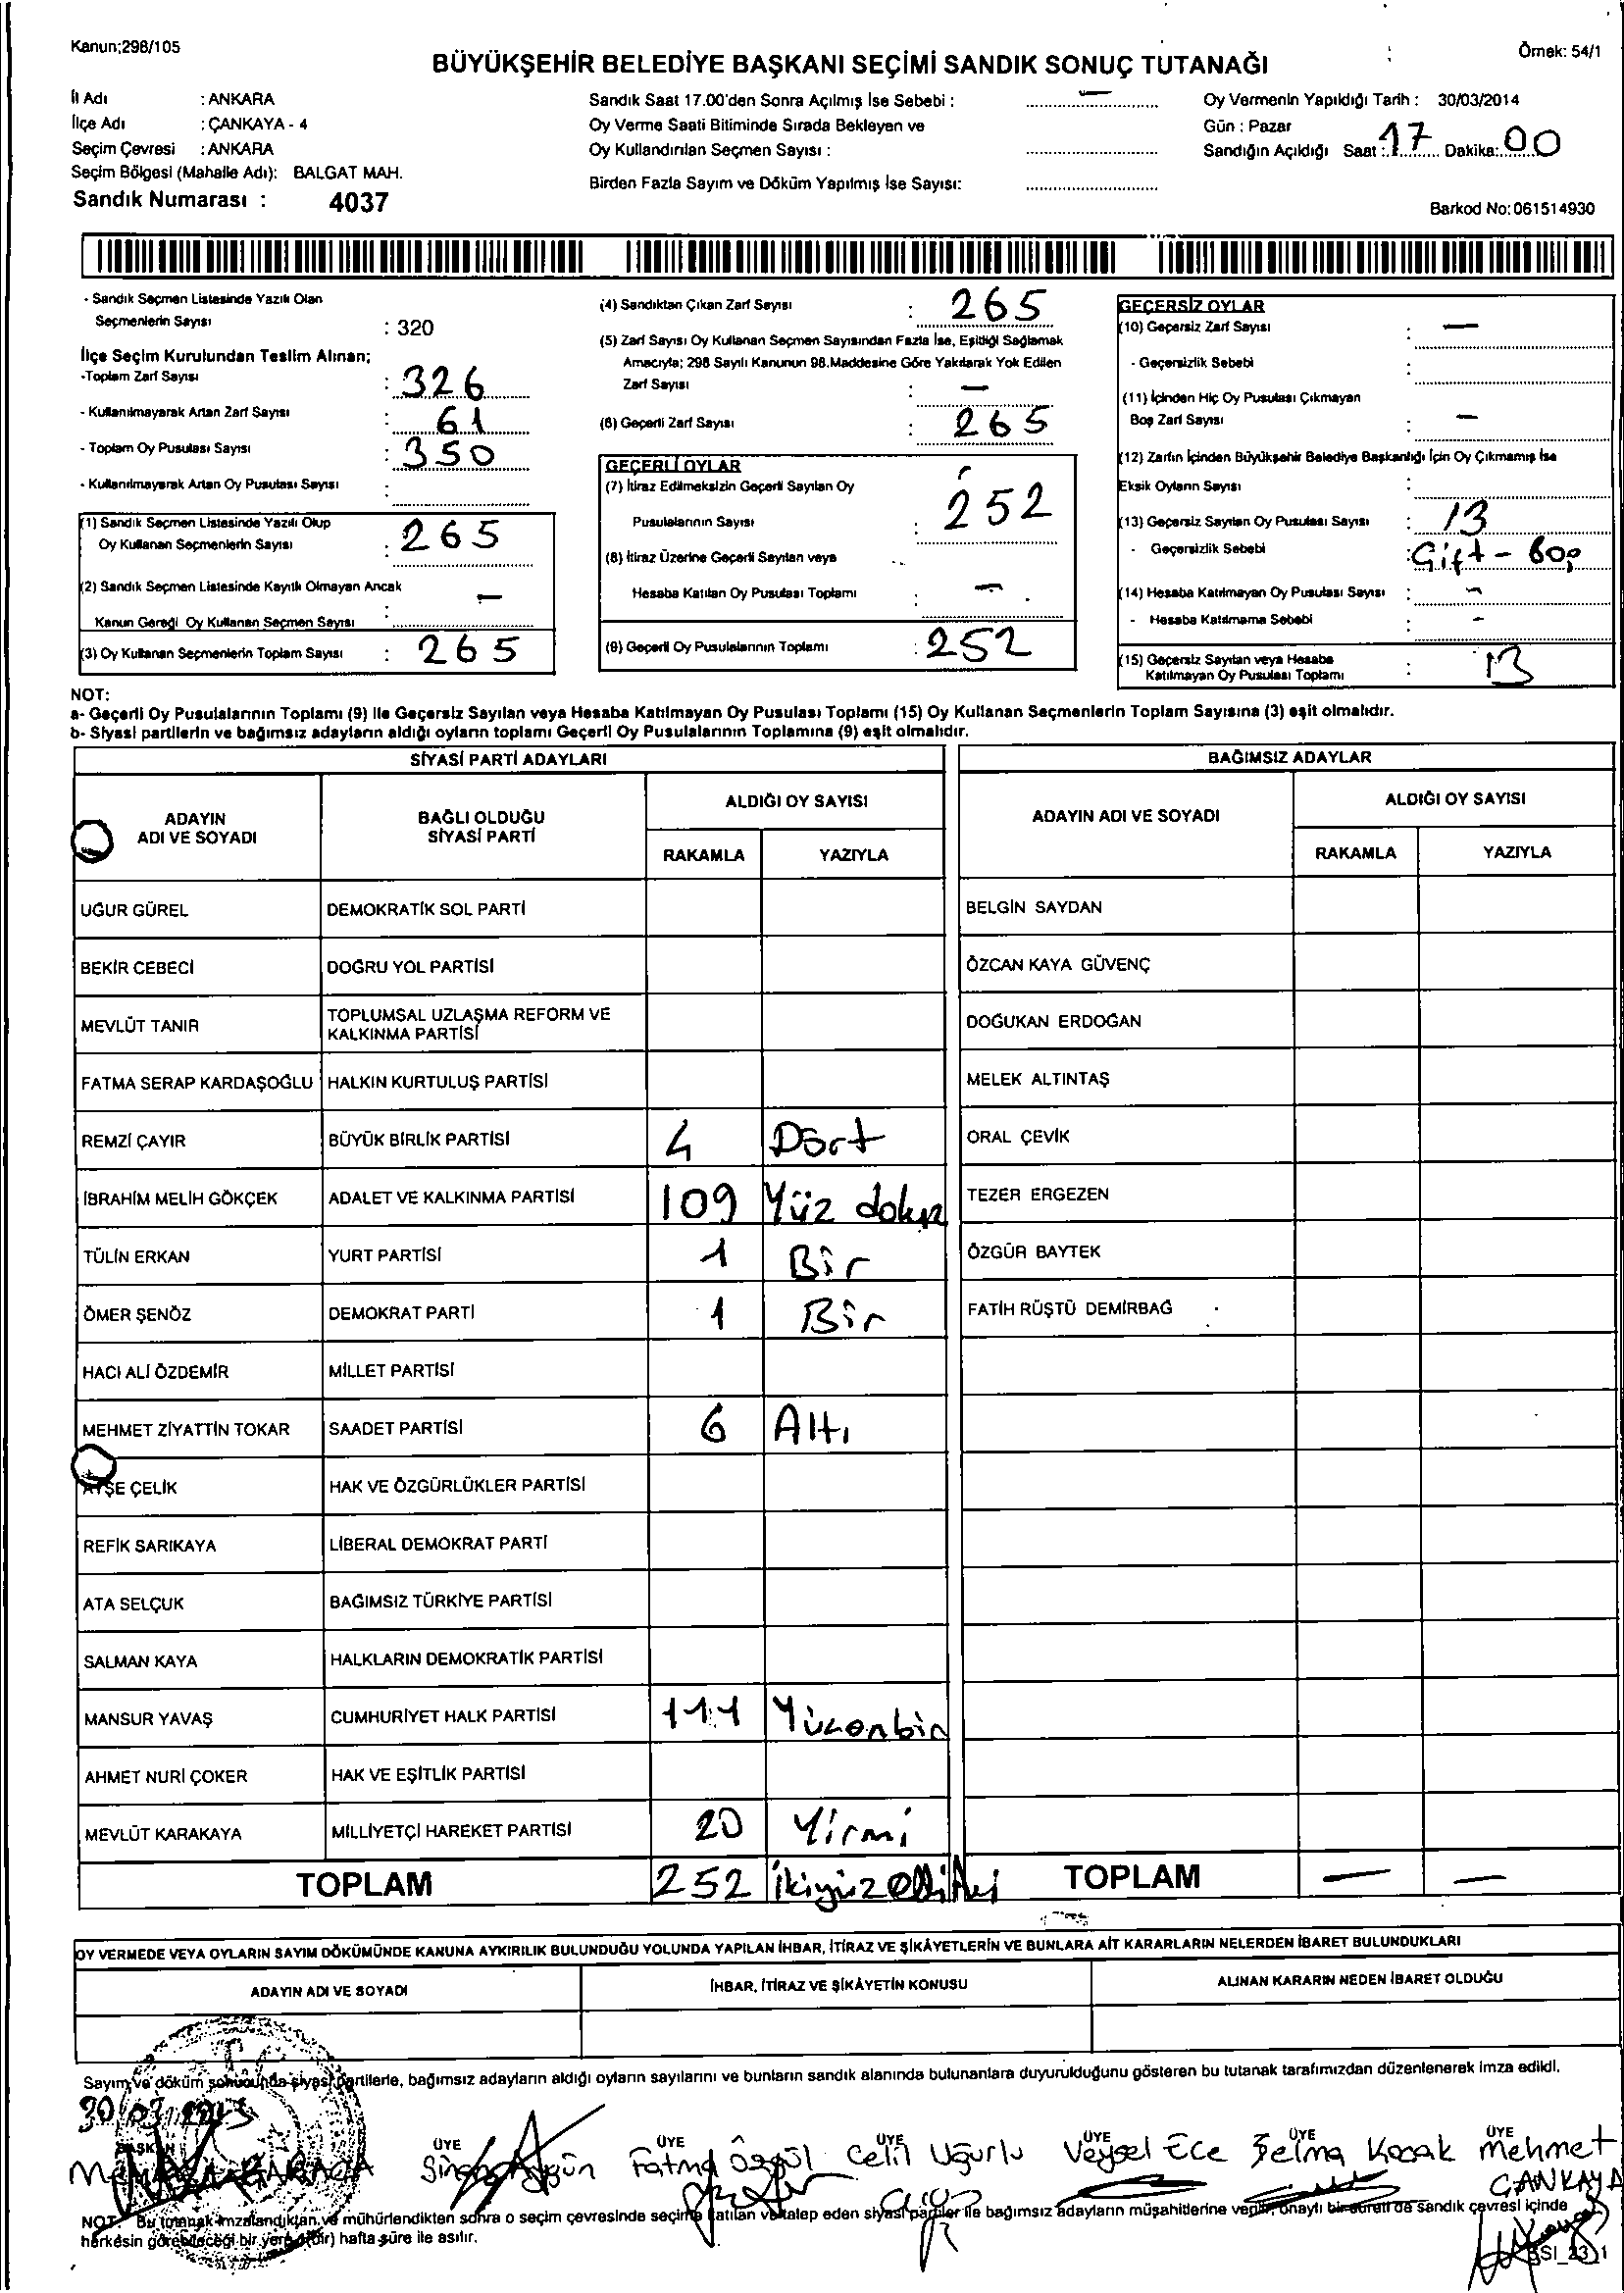 Kanun;298/105
Örnek: 54/1
BÜYÜKŞEHİR BELEDİYE BAŞKANI SEÇİMİ SANDIK SONUÇ TUTANAĞI
İl Adı : ANKARA
İlçe Adı : ÇANKAYA - 4
Seçim Çevresi : ANKARA
Seçim Bölgesi (Mahalle Adı): BALGAT MAH.
Sandık Numarası : 4037
Sandık Saat 17.00'den Sonra Açılmış İse Sebebi : —
Oy Verme Saati Bitiminde Sırada Bekleyen ve
Oy Kullandırılan Seçmen Sayısı :
Birden Fazla Sayım ve Döküm Yapılmış İse Sayısı:
Oy Vermenin Yapıldığı Tarih : 30/03/2014
Gün : Pazar
Sandığın Açıldığı Saat : 17 Dakika: 00
Barkod No: 061514930
- Sandık Seçmen Listesinde Yazılı Olan
Seçmenlerin Sayısı : 320
İlçe Seçim Kurulundan Teslim Alınan;
-Toplam Zarf Sayısı : 326
- Kullanılmayarak Artan Zarf Sayısı : 61
- Toplam Oy Pusulası Sayısı : 350
- Kullanılmayarak Artan Oy Pusulası Sayısı :
(1) Sandık Seçmen Listesinde Yazılı Olup
Oy Kullanan Seçmenlerin Sayısı : 265
(2) Sandık Seçmen Listesinde Kayıtlı Olmayan Ancak
Kanun Gereği Oy Kullanan Seçmen Sayısı : —
(3) Oy Kullanan Seçmenlerin Toplam Sayısı : 265
(4) Sandıktan Çıkan Zarf Sayısı : 265
(5) Zarf Sayısı Oy Kullanan Seçmen Sayısından Fazla İse, Eşitliği Sağlamak
Amacıyla; 298 Sayılı Kanunun 98.Maddesine Göre Yakılarak Yok Edilen
Zarf Sayısı : —
(6) Geçerli Zarf Sayısı : 265
GEÇERLİ OYLAR
(7) İtiraz Edilmeksizin Geçerli Sayılan Oy
Pusulalarının Sayısı : 252
(8) İtiraz Üzerine Geçerli Sayılan veya
Hesaba Katılan Oy Pusulası Toplamı : —
(9) Geçerli Oy Pusulalarının Toplamı : 252
GEÇERSİZ OYLAR
(10) Geçersiz Zarf Sayısı : —
- Geçersizlik Sebebi :
(11) İçinden Hiç Oy Pusulası Çıkmayan
Boş Zarf Sayısı : —
(12) Zarfın İçinden Büyükşehir Belediye Başkanlığı İçin Oy Çıkmamış İse
Eksik Oyların Sayısı :
(13) Geçersiz Sayılan Oy Pusulası Sayısı : 13
- Geçersizlik Sebebi : Çift - Boş
(14) Hesaba Katılmayan Oy Pusulası Sayısı : —
- Hesaba Katılmama Sebebi : —
(15) Geçersiz Sayılan veya Hesaba
Katılmayan Oy Pusulası Toplamı : 13
NOT:
a- Geçerli Oy Pusulalarının Toplamı (9) ile Geçersiz Sayılan veya Hesaba Katılmayan Oy Pusulası Toplamı (15) Oy Kullanan Seçmenlerin Toplam Sayısına (3) eşit olmalıdır.
b- Siyasi partilerin ve bağımsız adayların aldığı oyların toplamı Geçerli Oy Pusulalarının Toplamına (9) eşit olmalıdır.
SİYASİ PARTİ ADAYLARI
BAĞIMSIZ ADAYLAR
ADAYIN ADI VE SOYADI
BAĞLI OLDUĞU SİYASİ PARTİ
ALDIĞI OY SAYISI
RAKAMLA YAZIYLA
ADAYIN ADI VE SOYADI
ALDIĞI OY SAYISI
RAKAMLA YAZIYLA
UĞUR GÜREL DEMOKRATİK SOL PARTİ BELGİN SAYDAN
BEKİR CEBECİ DOĞRU YOL PARTİSİ ÖZCAN KAYA GÜVENÇ
MEVLÜT TANIR TOPLUMSAL UZLAŞMA REFORM VE KALKINMA PARTİSİ DOĞUKAN ERDOĞAN
FATMA SERAP KARDAŞOĞLU HALKIN KURTULUŞ PARTİSİ MELEK ALTINTAŞ
REMZİ ÇAYIR BÜYÜK BİRLİK PARTİSİ 4 Dört ORAL ÇEVİK
İBRAHİM MELİH GÖKÇEK ADALET VE KALKINMA PARTİSİ 109 Yüz dokuz TEZER ERGEZEN
TÜLİN ERKAN YURT PARTİSİ 1 Bir ÖZGÜR BAYTEK
ÖMER ŞENÖZ DEMOKRAT PARTİ 1 Bir FATİH RÜŞTÜ DEMİRBAĞ
HACI ALİ ÖZDEMİR MİLLET PARTİSİ
MEHMET ZİYATTİN TOKAR SAADET PARTİSİ 6 Altı
AYŞE ÇELİK HAK VE ÖZGÜRLÜKLER PARTİSİ
REFİK SARIKAYA LİBERAL DEMOKRAT PARTİ
ATA SELÇUK BAĞIMSIZ TÜRKİYE PARTİSİ
SALMAN KAYA HALKLARIN DEMOKRATİK PARTİSİ
MANSUR YAVAŞ CUMHURİYET HALK PARTİSİ 111 Yüzonbir
AHMET NURİ ÇOKER HAK VE EŞİTLİK PARTİSİ
MEVLÜT KARAKAYA MİLLİYETÇİ HAREKET PARTİSİ 20 Yirmi
TOPLAM 252 İkiyüzelliiki TOPLAM — —
OY VERMEDE VEYA OYLARIN SAYIM DÖKÜMÜNDE KANUNA AYKIRILIK BULUNDUĞU YOLUNDA YAPILAN İHBAR, İTİRAZ VE ŞİKÂYETLERİN VE BUNLARA AİT KARARLARIN NELERDEN İBARET BULUNDUKLARI
ADAYIN ADI VE SOYADI İHBAR, İTİRAZ VE ŞİKÂYETİN KONUSU ALINAN KARARIN NEDEN İBARET OLDUĞU
Sayım ve döküm sonucunda siyasi partilerle, bağımsız adayların aldığı oyların sayılarını ve bunların sandık alanında bulunanlara duyurulduğunu gösteren bu tutanak tarafımızdan düzenlenerek imza edildi.
BAŞKAN ÜYE ÜYE ÜYE ÜYE ÜYE ÜYE
Fatma Özgül Celil Uğurlu Veysel Ece Selma Koçak Mehmet
ÇANKAYA
NOT: Bu tutanak imzalandıktan ve mühürlendikten sonra o seçim çevresinde seçime katılan ve talep eden siyasi partiler ile bağımsız adayların müşahitlerine verilir, onaylı bir sureti de sandık çevresi içinde
herkesin görebileceği bir yere (bir) hafta süre ile asılır.